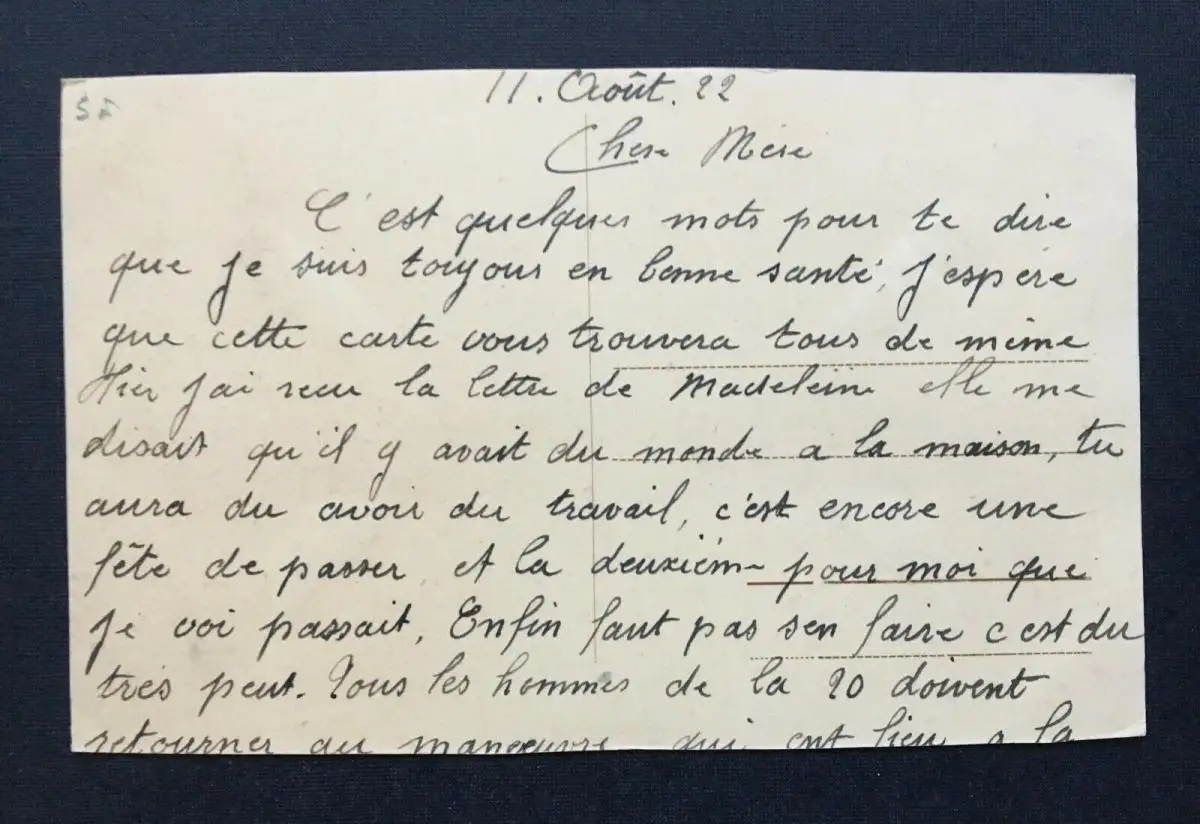 11. Août. 22
Chere Mère
C'est quelques mots pour te dire
que je suis toujours en bonne santé, j'espère
que cette carte vous trouvera tous de même
Hier j'ai recu la lettre de Madeleine elle me
disait qu'il y avait du monde a la maison, tu
aura du avoir du travail, c'est encore une
fête de passer, et la deuxième pour moi que
je voi passait, Enfin faut pas sen faire c'est du
très peut. Tous les hommes de la 20 doivent
retourner au manoeuvre qui ont lieu a la